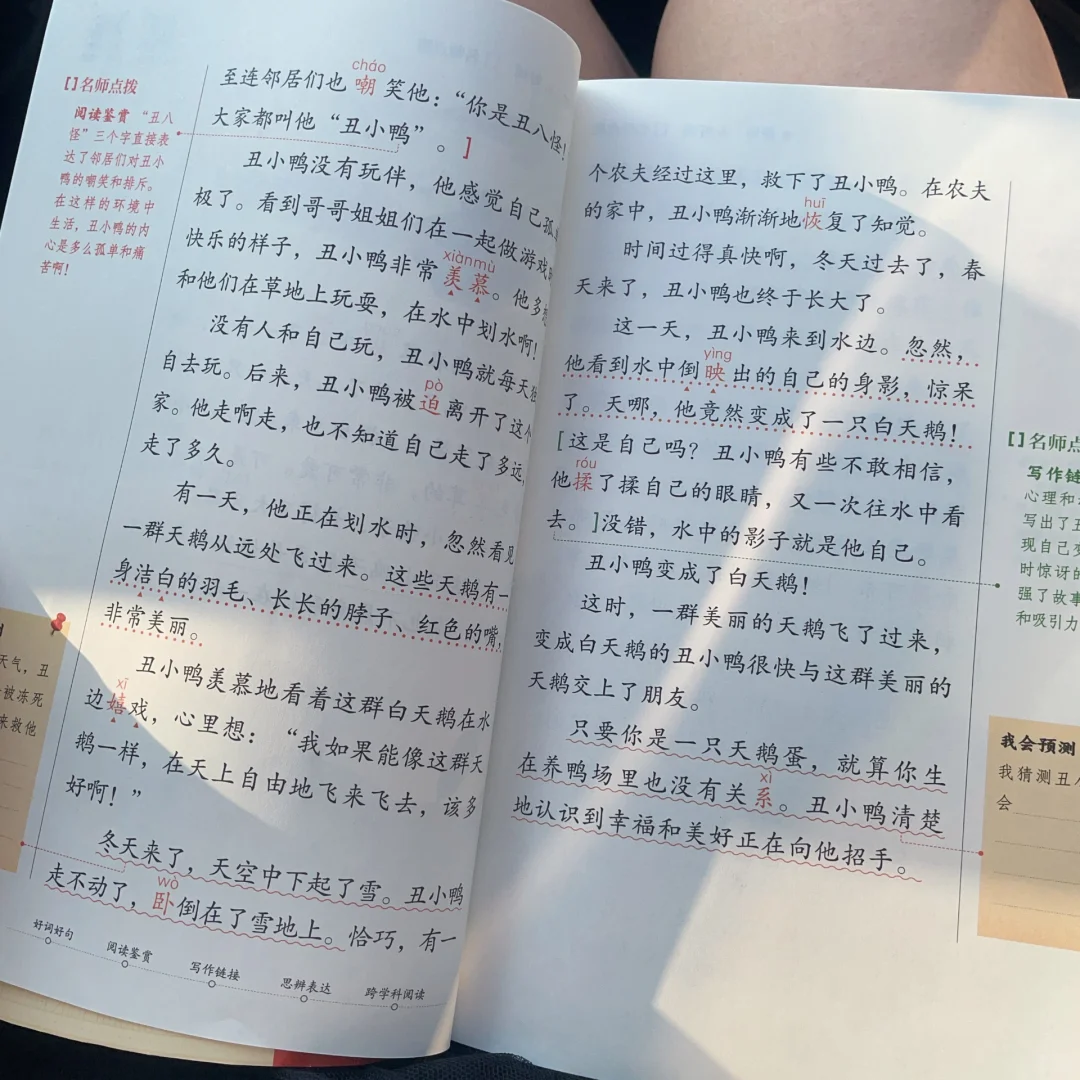 []名师点拨
阅读鉴赏 “丑八
怪”三个字直接表
达了邻居们对丑小
鸭的嘲笑和排斥。
在这样的环境中
生活，丑小鸭的内
心是多么孤单和痛
苦啊！
cháo
至连邻居们也嘲笑他：“你是丑八怪！
大家都叫他“丑小鸭”。]
丑小鸭没有玩伴，他感觉自己孤
极了。看到哥哥姐姐们在一起做游戏
快乐的样子，丑小鸭非常羡慕。他多
xiànmù
和他们在草地上玩耍，在水中划水啊！
没有人和自己玩，丑小鸭就每天
自去玩。后来，丑小鸭被迫离开了这个
pò
家。他走啊走，也不知道自己走了多远，
走了多久。
有一天，他正在划水时，忽然看见
一群天鹅从远处飞过来。这些天鹅有一
身洁白的羽毛、长长的脖子、红色的嘴，
非常美丽。
丑小鸭羡慕地看着这群白天鹅在水
xī
边嬉戏，心里想：“我如果能像这群天
鹅一样，在天上自由地飞来飞去，该多
好啊！”
冬天来了，天空中下起了雪。丑小鸭
wò
走不动了，卧倒在了雪地上。恰巧，有一
天气，丑
被冻死
来救他
好词好句
阅读鉴赏
写作链接
思辨表达
跨学科阅读
个农夫经过这里，救下了丑小鸭。在农夫
huī
的家中，丑小鸭渐渐地恢复了知觉。
时间过得真快啊，冬天过去了，春
天来了，丑小鸭也终于长大了。
这一天，丑小鸭来到水边。忽然，
yìng
他看到水中倒映出的自己的身影，惊呆
了。天哪，他竟然变成了一只白天鹅！
[这是自己吗？丑小鸭有些不敢相信，
róu
他揉了揉自己的眼睛，又一次往水中看
去。]没错，水中的影子就是他自己。
丑小鸭变成了白天鹅！
这时，一群美丽的天鹅飞了过来，
变成白天鹅的丑小鸭很快与这群美丽的
天鹅交上了朋友。
只要你是一只天鹅蛋，就算你生
xì
在养鸭场里也没有关系。丑小鸭清楚
地认识到幸福和美好正在向他招手。
[]名师点
写作链
心理和
写出了丑
现自己变
时惊讶的
强了故事
和吸引力
我会预测
我猜测丑
会